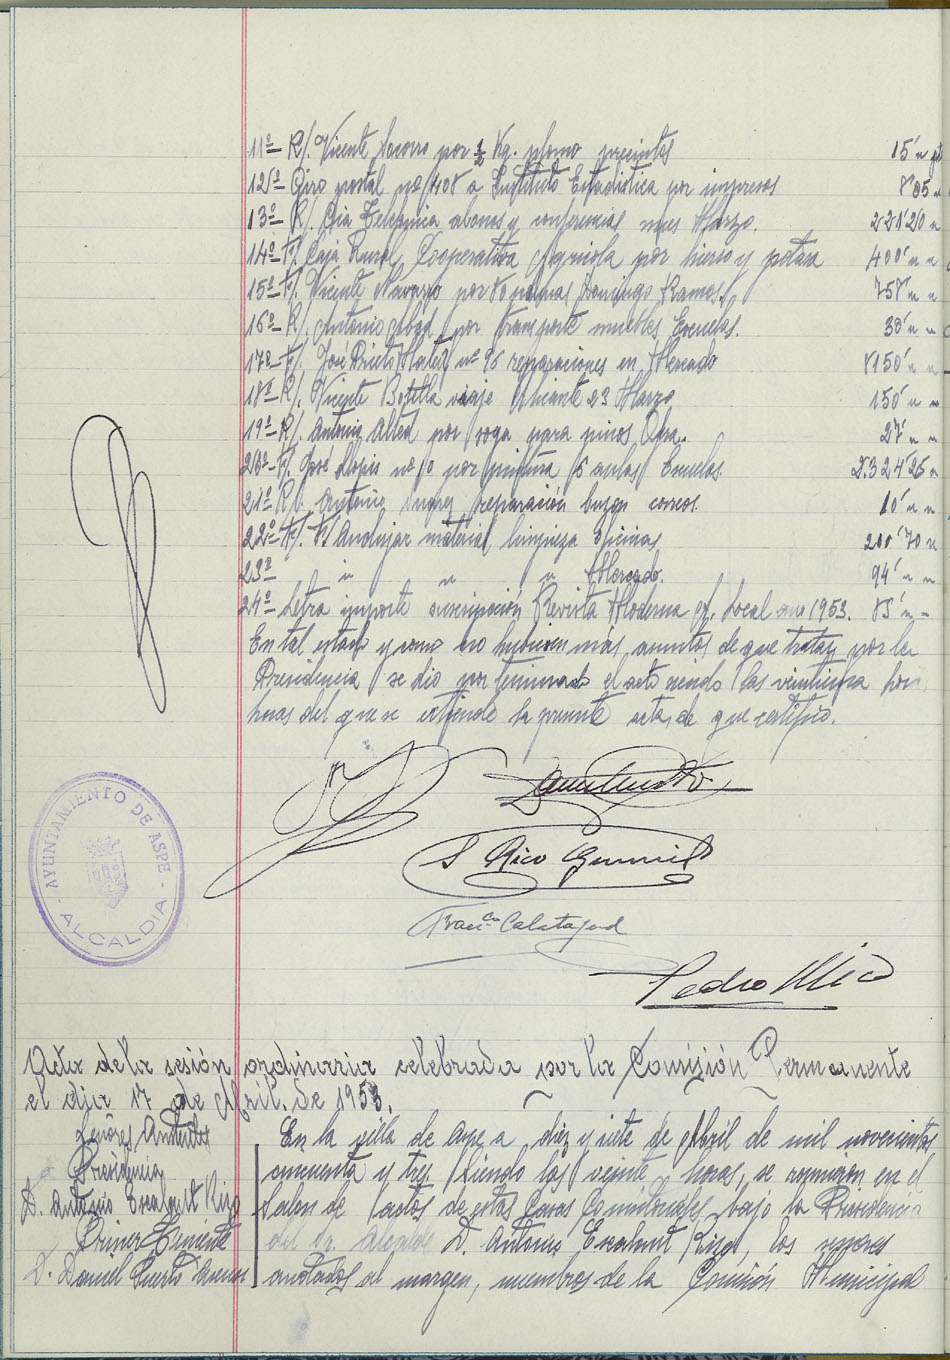 11º- R/. Vicente por ½ Kg. plomo precintos 15'
12º- Giro postal nº 408 a Instituto Estadistica por impresos 8'05
13º- R/. Cia Telefonica abonos y conferencias mes Marzo. 221'20
14º- F/. Caja Rural, Cooperativa Agricola por hierro y 400'
15º- F/. Vicente Navarro por palmas Domingo Ramos. 758'
16º- R/. Antonio Abad por transporte muebles Escuelas. 30'
17º- F/. José Prieto nº 96 reparaciones en Mercado 8150'
18º- R/. Vicente Botella viaje Alicante 23 Marzo 150'
19º- R/. Antonio Alted por soga para pinos 27'
20º- F/. José Alopis nº 10 por pintura 6 aulas Escuelas 2.324'25
21º- R/. Antonio reparación buzon correos. 10'
22º- F/. F. Andujar material limpieza oficinas 200'70
23º " " " Mercado. 94'
24º- Letra importe suscripción Revista Moderna Local año 1953. 85'
En tal estado y como no hubiesen mas asuntos de que tratar por la
Presidencia se dio por terminado el acto siendo las veintiuna
horas del que se extiende la presente acta, de que certifico.
AYUNTAMIENTO DE ASPE
- ALCALDIA -
S Rico
Franco Calatayud
Pedro Mico
Acta de la sesión ordinaria celebrada por la Comisión Permanente
el dia 17 de Abril de 1953.
Señores Asistentes
Presidencia
D. Antonio Escalant Rizo
Primer Teniente
D. Daniel Puerto
En la villa de Aspe a diez y siete de Abril de mil novecientos
cincuenta y tres siendo las veinte horas, se reunieron en el
Salon de actos de estas Casas Consistoriales, bajo la Presidencia
del Sr. Alcalde D. Antonio Escalant Rizo, los señores
anotados al margen, miembros de la Comisión Municipal